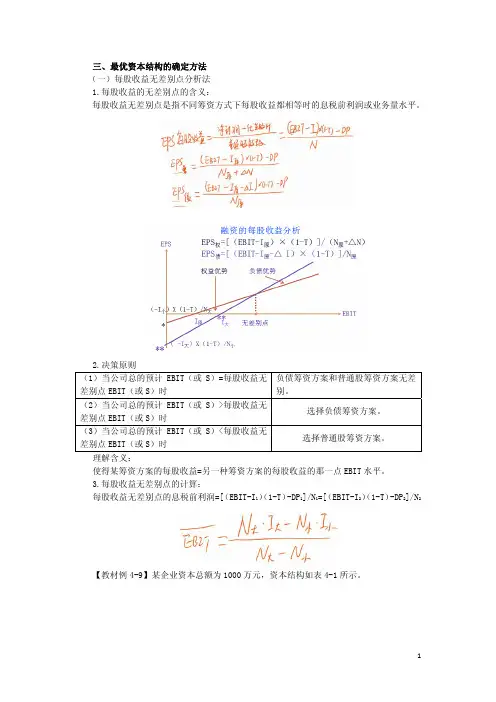 三、最优资本结构的确定方法
（一）每股收益无差别点分析法
1.每股收益的无差别点的含义：
每股收益无差别点是指不同筹资方式下每股收益都相等时的息税前利润或业务量水平。
EPS每股收益=净利润-优先股股利/普通股股数=(EBIT-I)×(1-T)-DP/N
EPS普=(EBIT-I原)×(1-T)-DP/N原+ΔN
EPS债=(EBIT-I原-ΔI)×(1-T)-DP/N原
融资的每股收益分析
EPS
EPS权=[（EBIT-I原）×（1-T）]/（N原+△N）
EPS债=[（EBIT-I原-△ I）×（1-T）]/N原
权益优势 负债优势
（-I小）X（1-T）/N大
* I原 ** I大 无差别点 EBIT
** （ -I大）X（1-T）/N小
2.决策原则
（1）当公司总的预计 EBIT（或 S）=每股收益无差别点 EBIT（或 S）时
负债筹资方案和普通股筹资方案无差别。
（2）当公司总的预计 EBIT（或 S）>每股收益无差别点 EBIT（或 S）时
选择负债筹资方案。
（3）当公司总的预计 EBIT（或 S）<每股收益无差别点 EBIT（或 S）时
选择普通股筹资方案。
理解含义：
使得某筹资方案的每股收益=另一种筹资方案的每股收益的那一点 EBIT 水平。
3.每股收益无差别点的计算：
每股收益无差别点的息税前利润=[（EBIT-I₁)（1-T）-DP₁]/N₁=[（EBIT-I₂)（1-T）-DP₂]/N₂
EBIT=N大·I大-N小·I小/N大-N小
【教材例 4-9】某企业资本总额为 1000 万元，资本结构如表 4-1 所示。
1